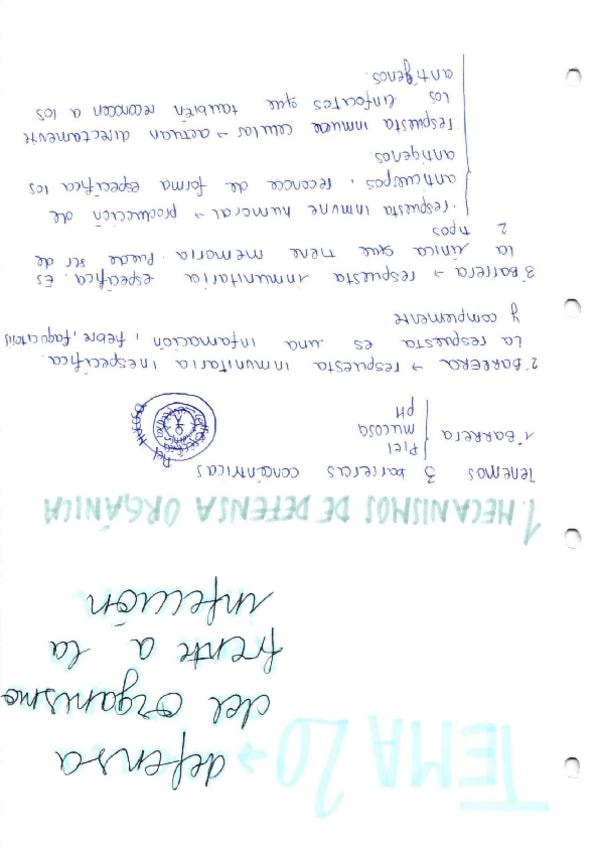 TEMA 20 → defensa
del organismo
frente a la
infección
1. MECANISMOS DE DEFENSA ORGÁNICA
Tenemos 3 barreras concéntricas
1ª BARRERA { PIEL
MUCOSA
PH
PIEL
2ª BARRERA → respuesta inmunitaria inespecífica.
La respuesta es una infamación, fiebre, fagocitosis
y complemente
3ª BARRERA → respuesta inmunitaria específica. Es
la única que tiene memoria. Puede ser de
2 tipos
· respuesta inmune humoral → producción de
anticuerpos, reconoce de forma específica los
antígenos
respuesta inmune celular → actúan directamente
los linfocitos que también reconocen a los
antígenos.